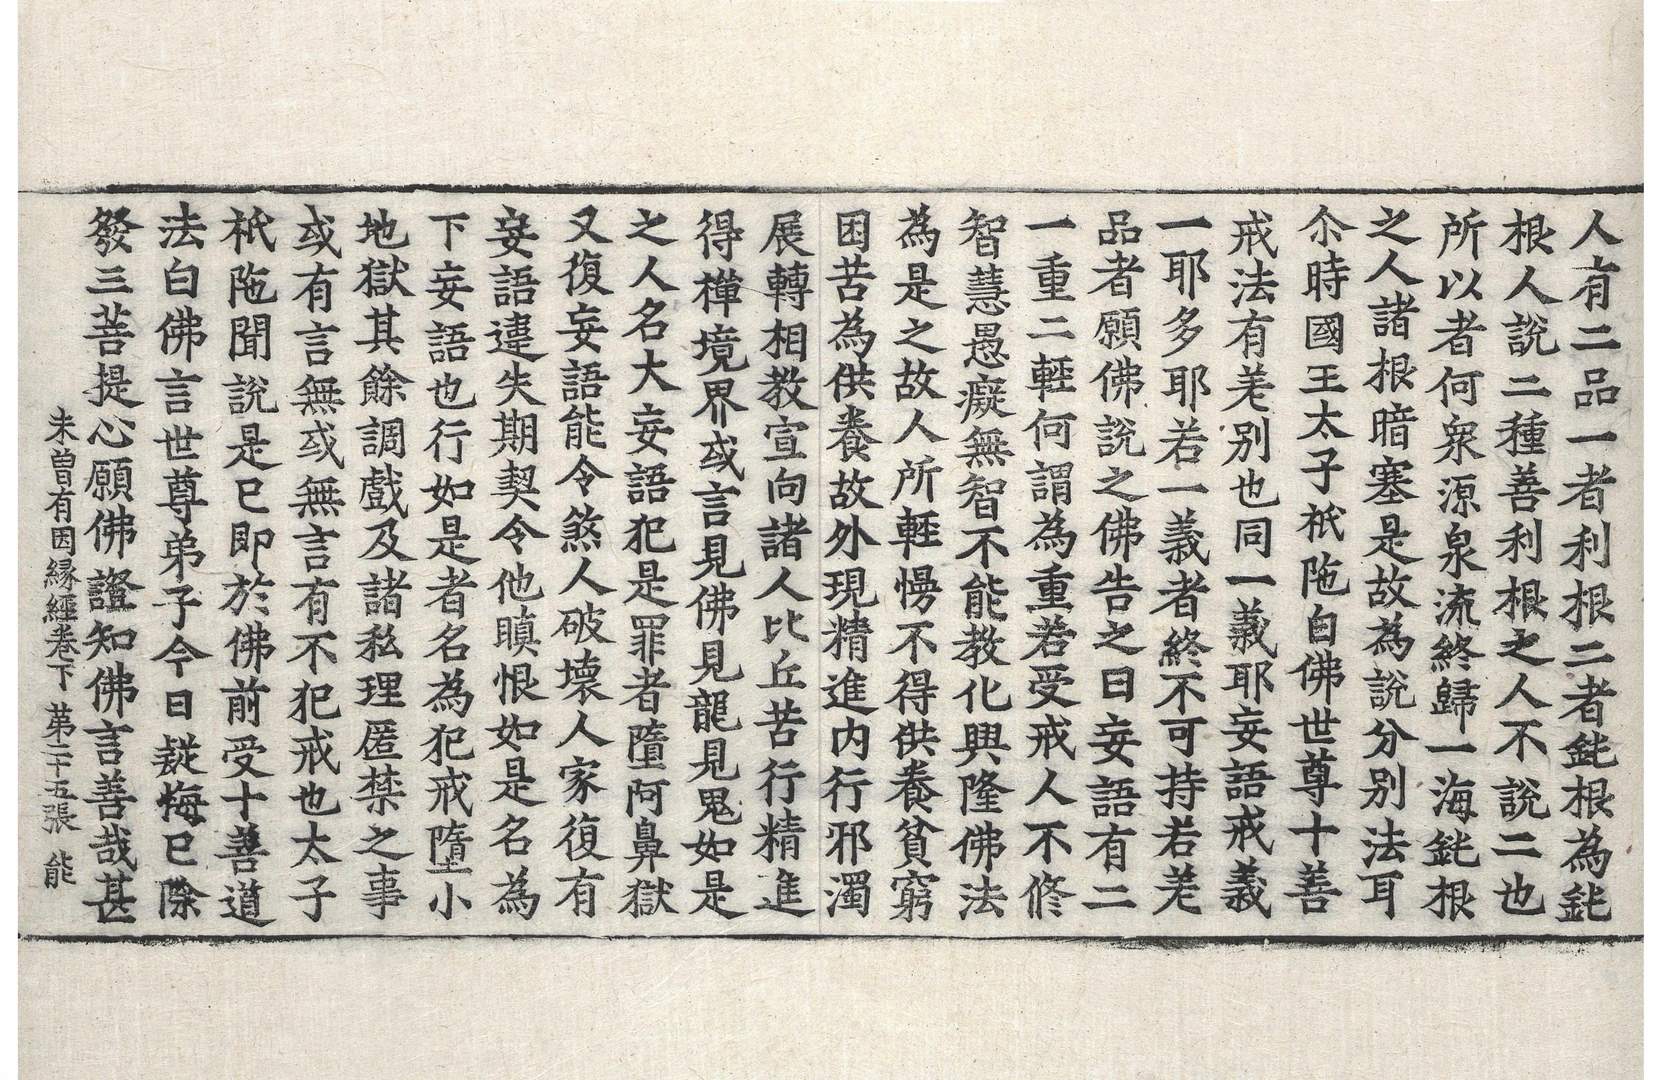 人有二品一者利根二者鈍根為鈍
根人說二種善利根之人不說二也
所以者何衆源泉流終歸一海鈍根
之人諸根暗塞是故為說分別法耳
尒時國王太子祇陁白佛世尊十善
戒法有差別也同一義耶妄語戒義
一耶多耶若一義者終不可持若差
品者願佛說之佛告之曰妄語有二
一重二輕何謂為重若受戒人不修
智慧愚癡無智不能教化興隆佛法
為是之故人所輕慢不得供養貧窮
困苦為供養故外現精進內行邪濁
展轉相教宣向諸人比丘苦行精進
得禪境界或言見佛見龍見鬼如是
之人名大妄語犯是罪者墮阿鼻獄
又復妄語能令煞人破壞人家復有
妄語違失期契令他瞋恨如是名為
下妄語也行如是者名為犯戒墮小
地獄其餘調戲及諸私理匿禁之事
或有言無或無言有不犯戒也太子
祇陁聞說是已即於佛前受十善道
法白佛言世尊弟子今日疑悔已除
發三菩提心願佛證知佛言善哉甚
未曽有因縁經卷下 第二十五張 能